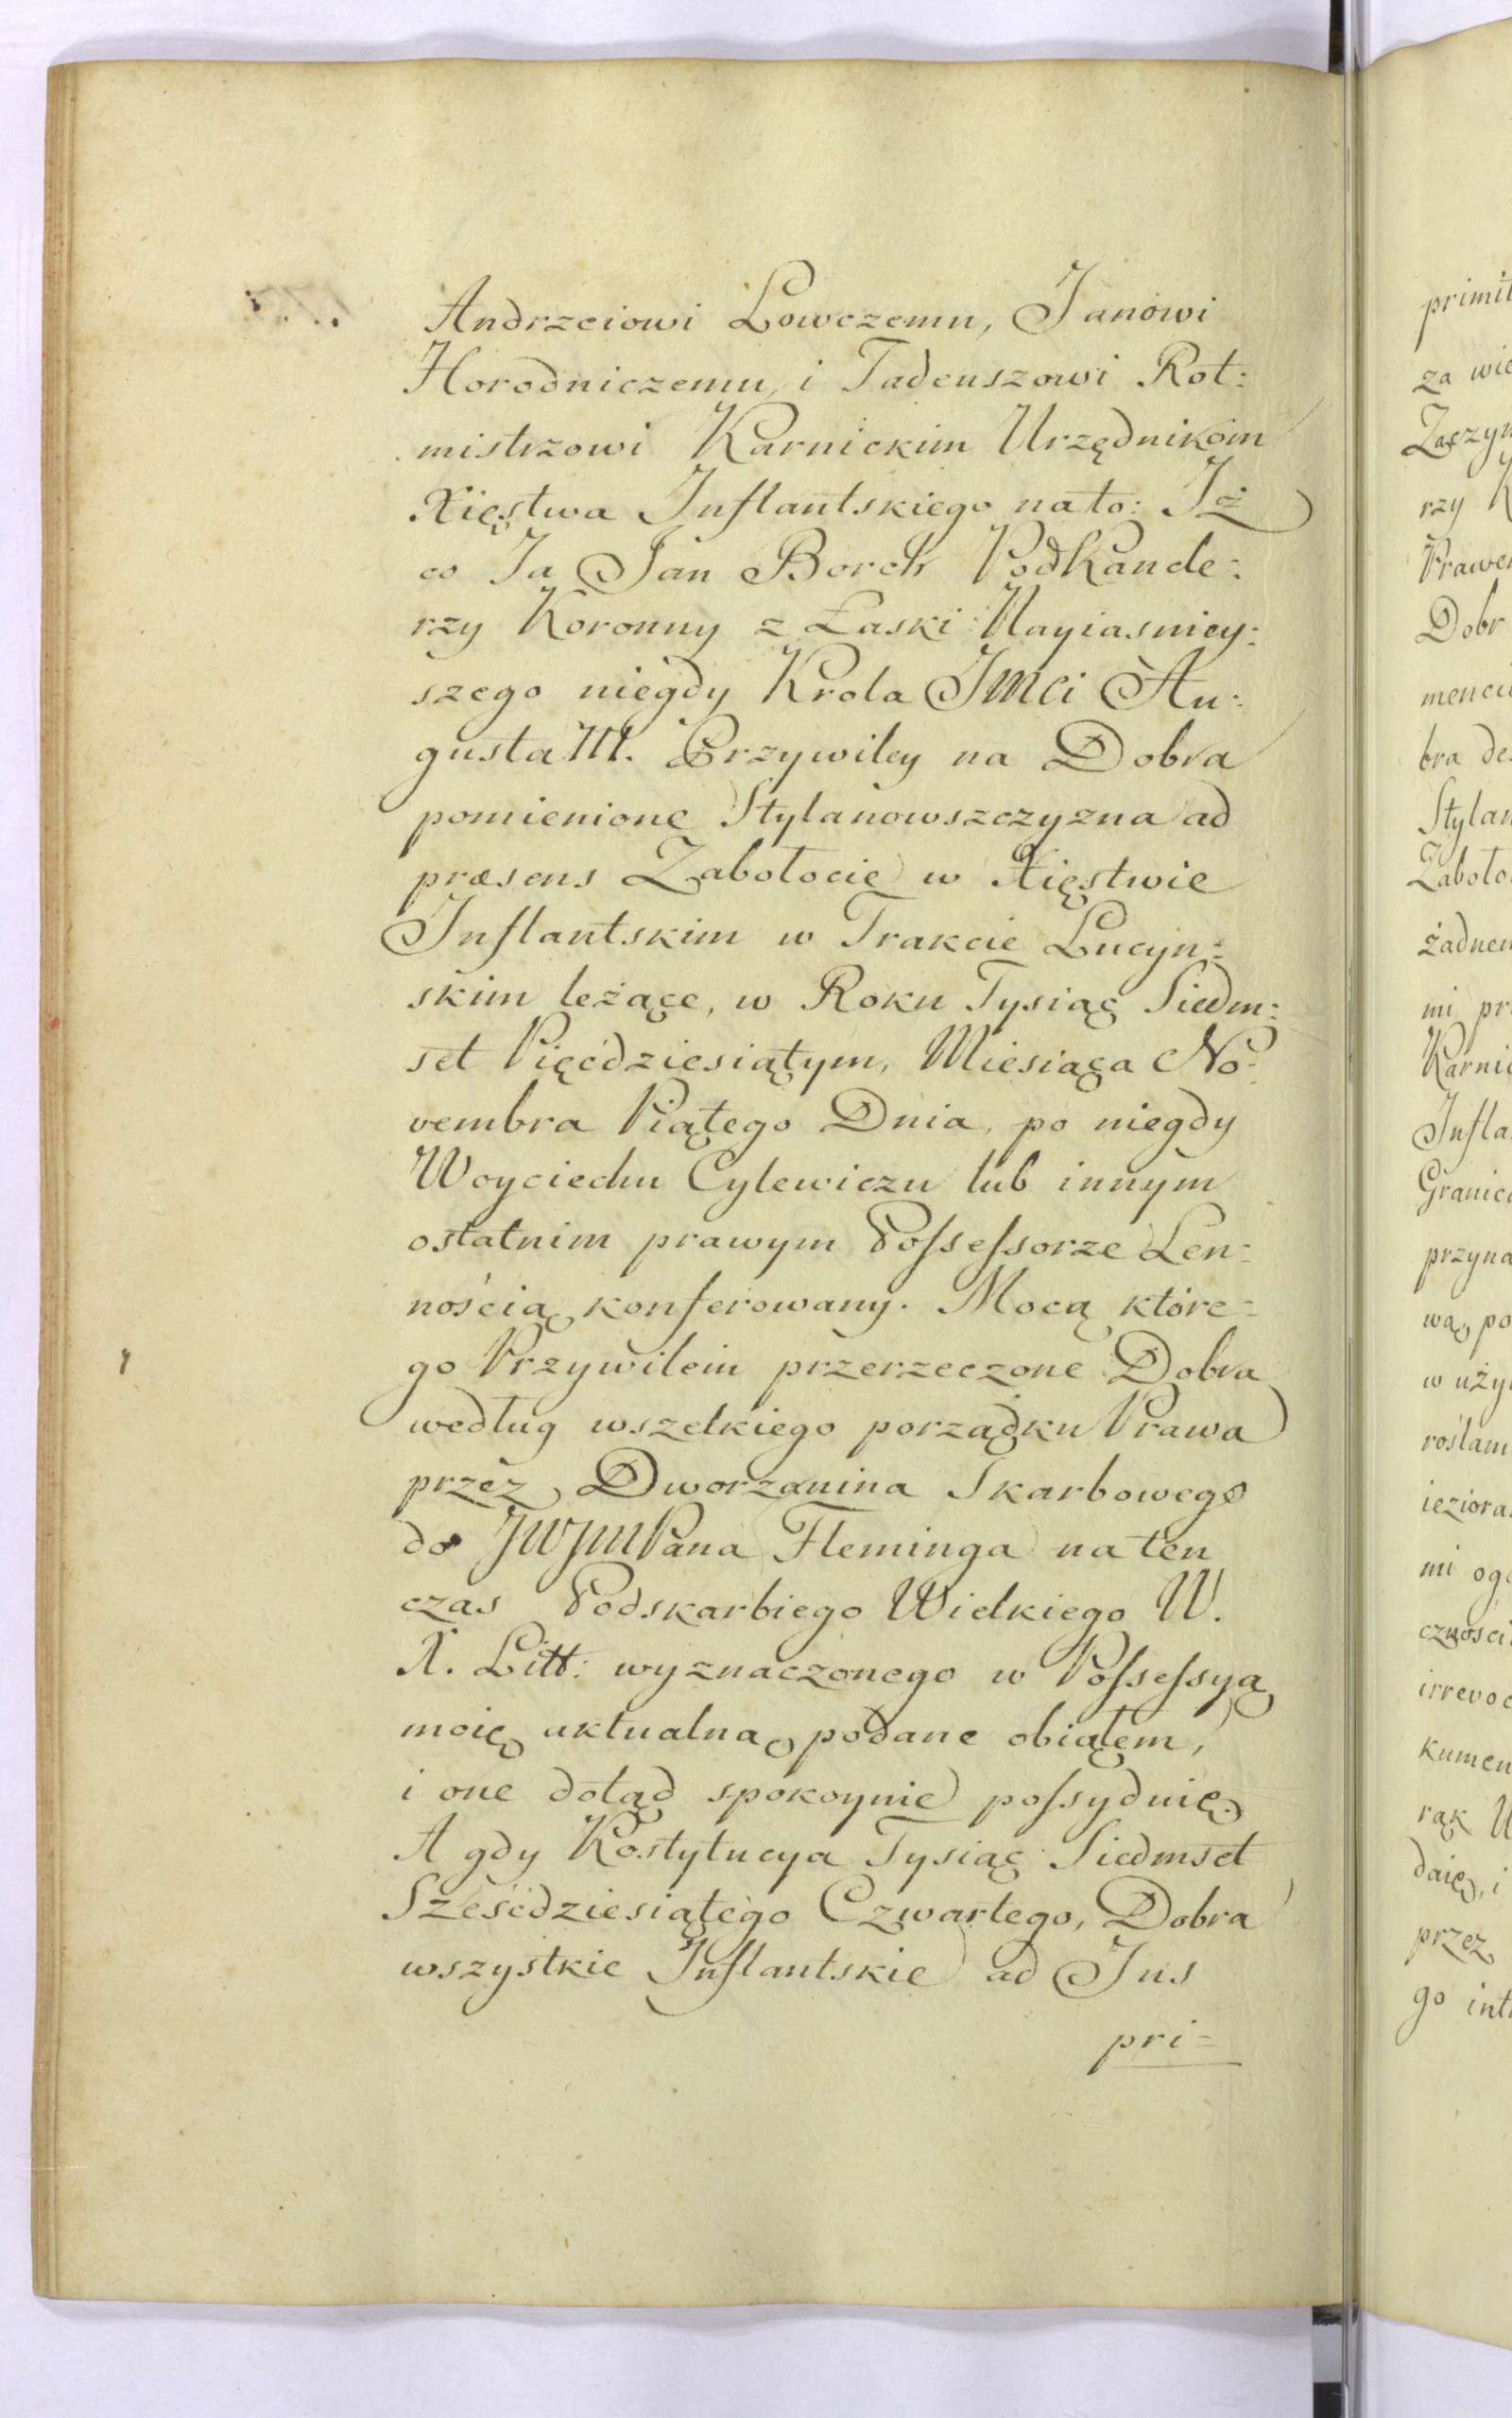 Andrzeiowi Łowczemu, Janowi
Horodniczemu, i Tadeuszowi Rot:
mistrzowi Karnickim Urzędnikóm
Xięstwa Inflantskiego na to: Iż
co Ja Jan Borch PodKancle:
rzy Koronny z Łaski Nayiasniey:
szego niegdy Krola JMCi Au:
gusta III. Przywiley na Dobra
pomienione Stylanowszczyzna ad
præsens Zabołocie w Xięstwie
Inflantskim w Trakcie Lucyn:
skim leżące, w Roku Tysiąc Siedm:
set Pięćdziesiątym, Miesiąca No:
vembra Piątego Dnia, po niegdy
Woyciechu Cylewiczu lub innym
ostatnim prawym Possessorze Len:
nością konferowany. Mocą które:
go Przywileiu przerzeczone Dobra
według wszelkiego porządku Prawa
przez Dworzanina Skarbowego
do JWJMPana Fleminga na ten
czas Podskarbiego Wielkiego W.
X. Litt: wyznaczonego w Possessyą
moię aktualną podane obiąłem,
i one dotąd spokoynie possyduię.
A gdy Kostytucya Tysiąc Siedmset
Sześćdziesiątego Czwartego, Dobra
wszystkie Inflantskie ad Jus
pri=
primit
za wie
Zaczym
rzy K
Prawem
Dobr
mencie
bra de
Stylan
Zaboło
żadnem
mi pr
Karnic
Infla
Granica
przyna
wą, po
w uży
roślam
ieziora
mi og
czności
irrevoc
kumen
rąk U
daię, i
przez
go int